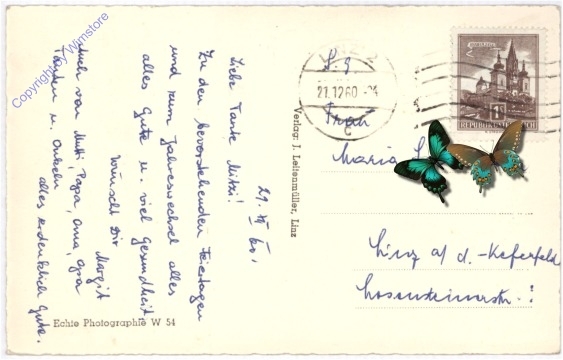 21. XII 60.
Liebe Tante Mitzi!
Zu den bevorstehenden Feiertagen
und zum Jahreswechsel alles
alles Gute u. viel Gesundheit
wünscht Dir
Margit
Auch von Mutti, Papa, Oma, Opa
Tanten u. Onkeln
alles erdenklich Gute.
Echte Photographie W 54
Verlag: J. Leitenmüller, Linz
LINZ 2
21.12.60
c
MARIAZELL
1S
REPUBLIK ÖSTERREICH
S. g.
Frau
Maria
Linz a/d.-Keferfeld
Losensteinerstr.
Copyright by Wimstore